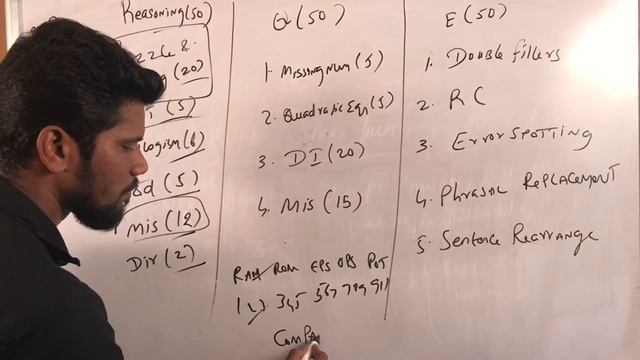 Reasoning (50)
&
(20)
(5)
logism (6)
od (5)
Mis (12)
Dir (2)
Q (50)
1. Missing Num (5)
2. Quadratic Eqn (5)
3. DI (20)
4. Mis (15)
RAM ROM EPS OPS POT
345 567 789 911
COMPA
E (50)
1. Double fillers
2. RC
3. Error SPOTTING
4. Phrase REPLACEMENT
5. Sentence Rearrange